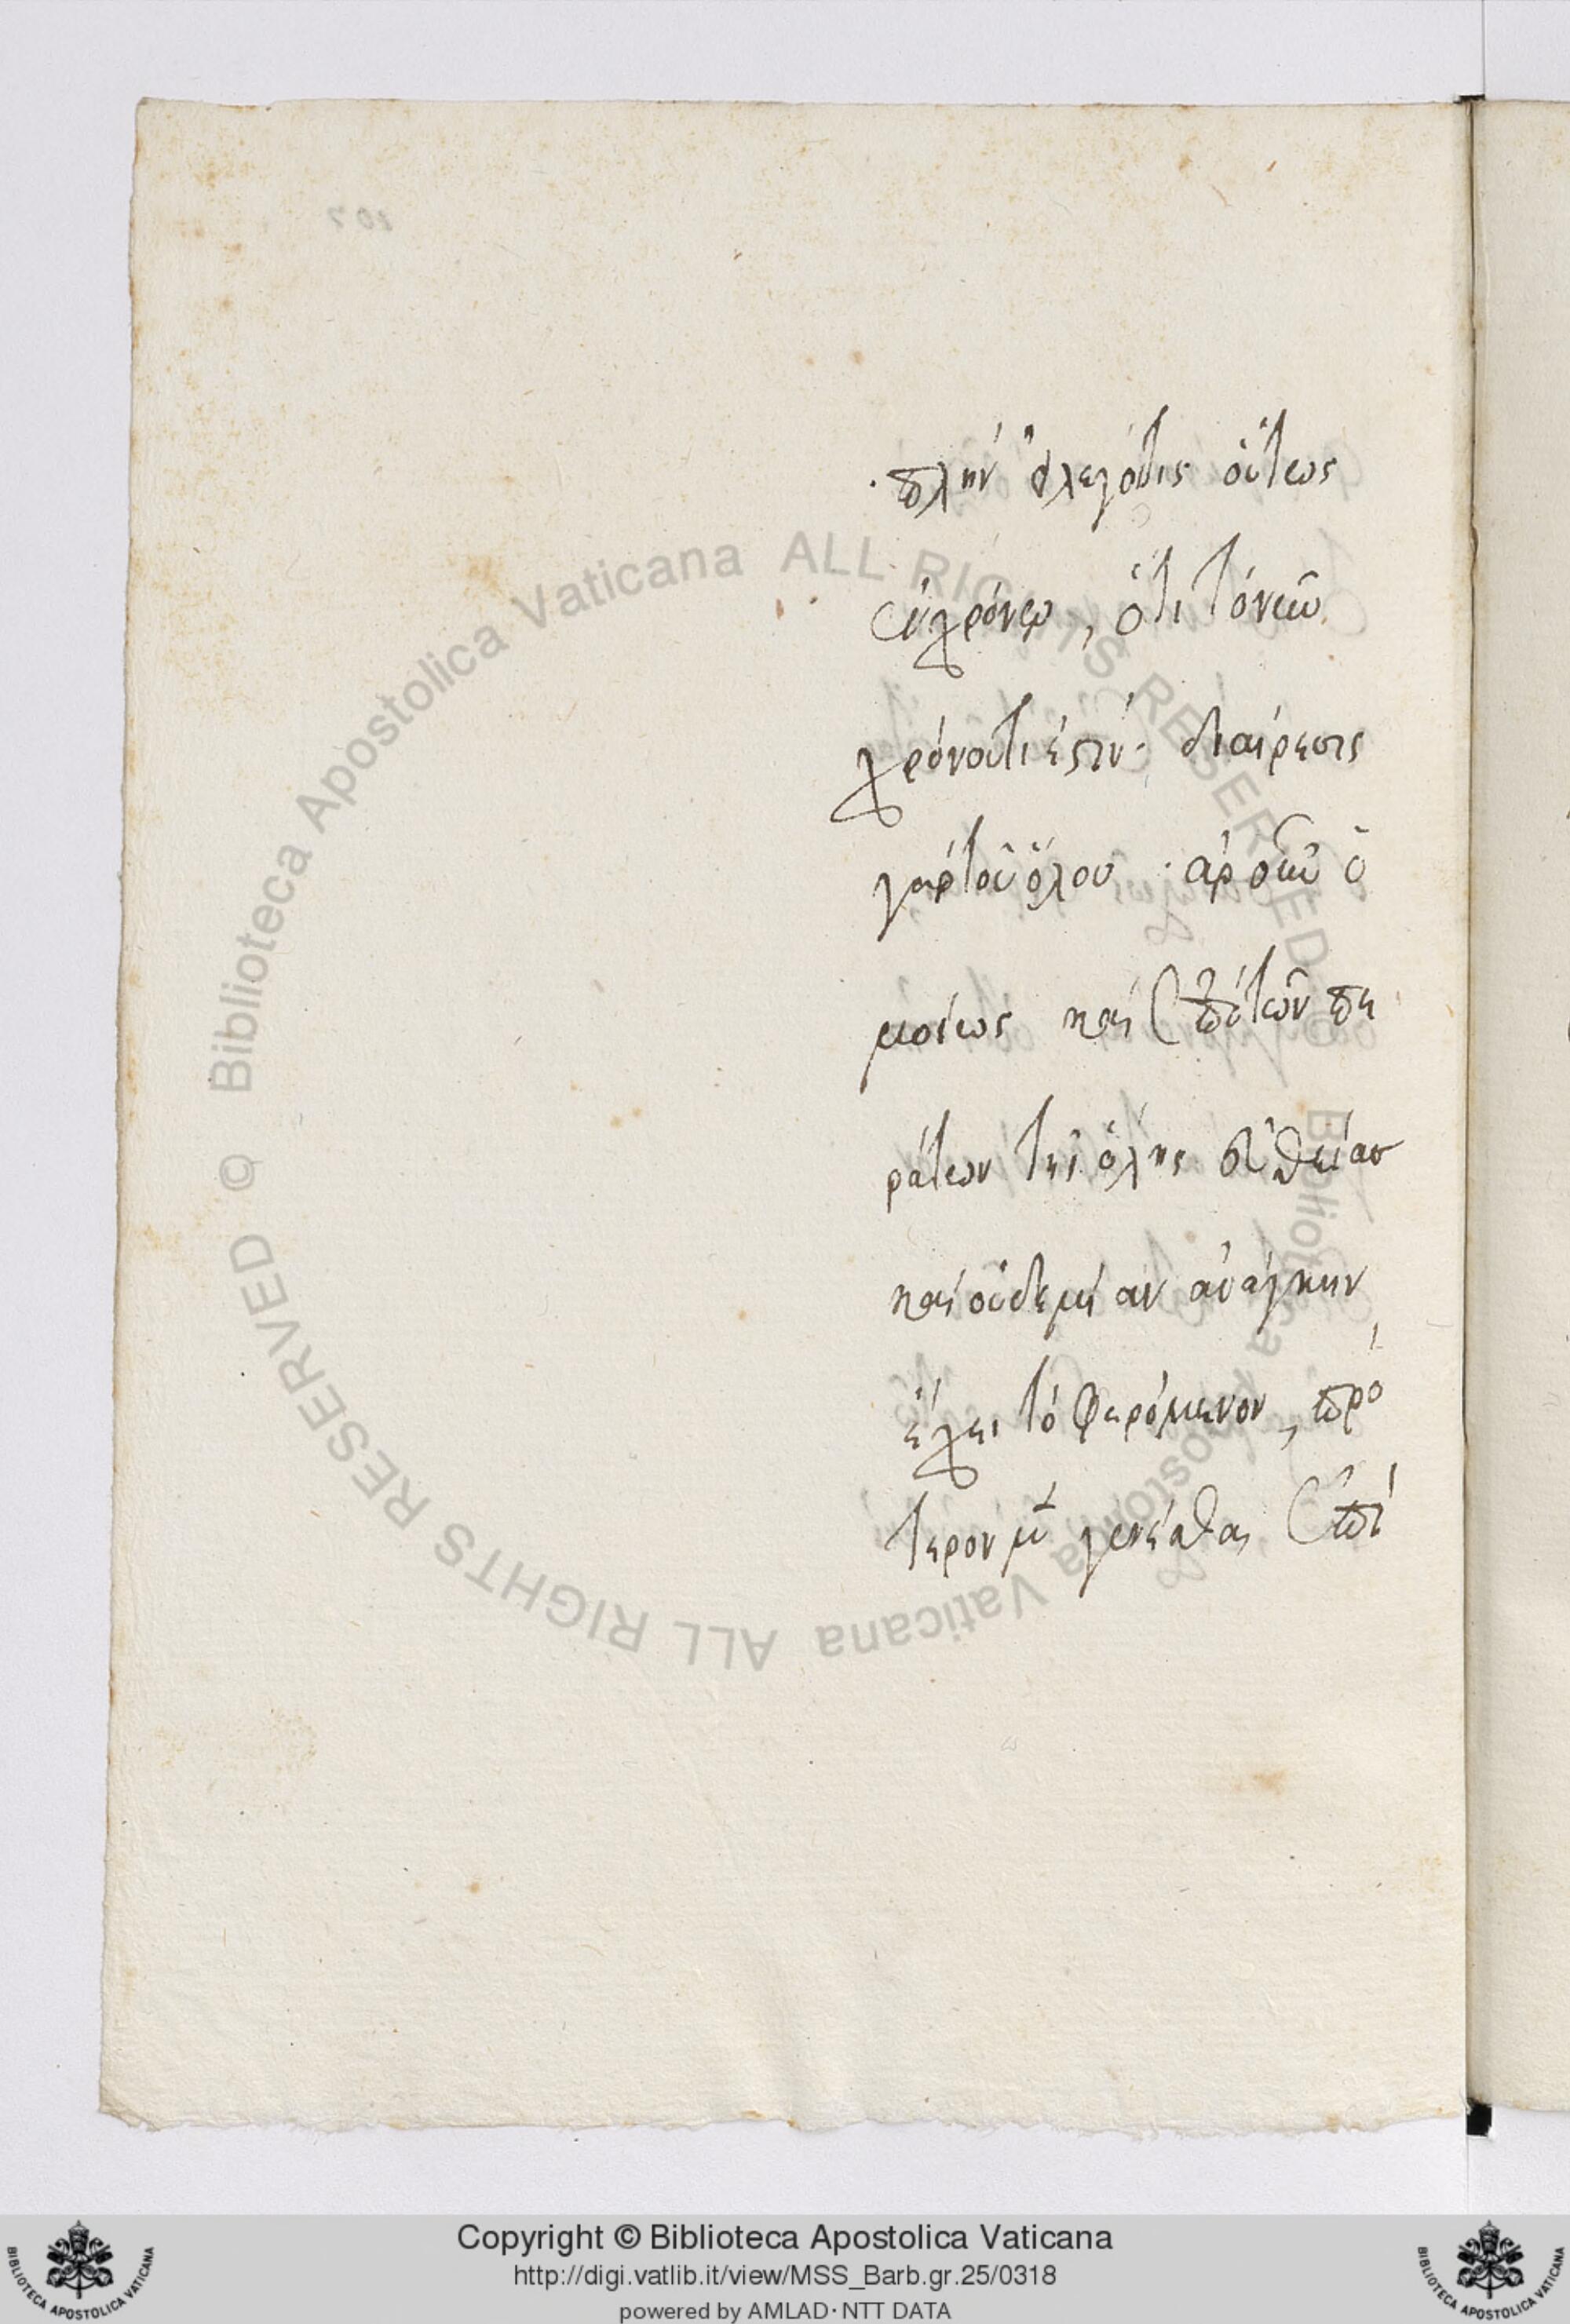 107
· πλὴν εἰ λέγοι τις οὕτως
ἐν χρόνῳ, ὅτι τὸ νῦν
χρόνου τί ἐστιν· διαίρεσις
γὰρ τοῦ ὅλου · ἆρ' οὖν ὁ
μοίως καὶ ἐπὶ τῶν πε
ράτων τῆς ὅλης εὐθείας
καὶ οὐδεμίαν ἀνάγκην
ἔχει τὸ φερόμενον, πρό
τερον μὲν γενέσθαι ἐπὶ
Copyright © Biblioteca Apostolica Vaticana
http://digi.vatlib.it/view/MSS_Barb.gr.25/0318
powered by AMLAD·NTT DATA
Biblioteca Apostolica Vaticana ALL RIGHTS RESERVED ©
Biblioteca Apostolica Vaticana ALL RIGHTS RESERVED ©
BIBLIOTECA APOSTOLICA VATICANA
BIBLIOTECA APOSTOLICA VATICANA